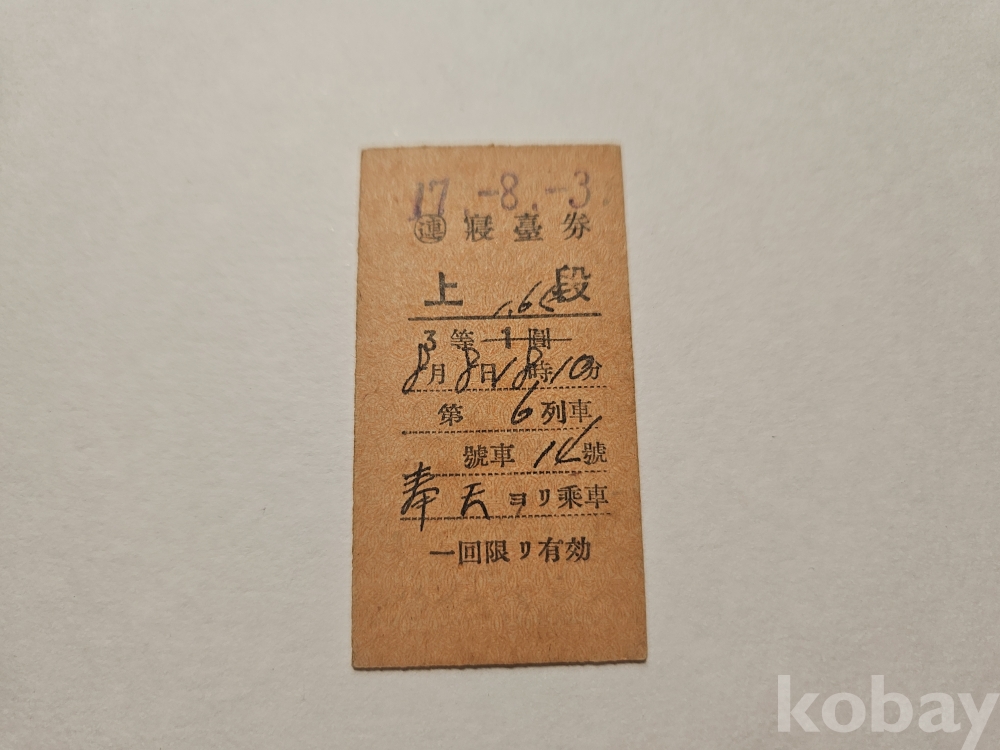 17.-8.-3.
㊥連 寢臺券
上段
1.65
3等1圓
8月8日18時10分
第6列車
號車14號
奉天ヨリ乘車
一回限リ有効
kobay